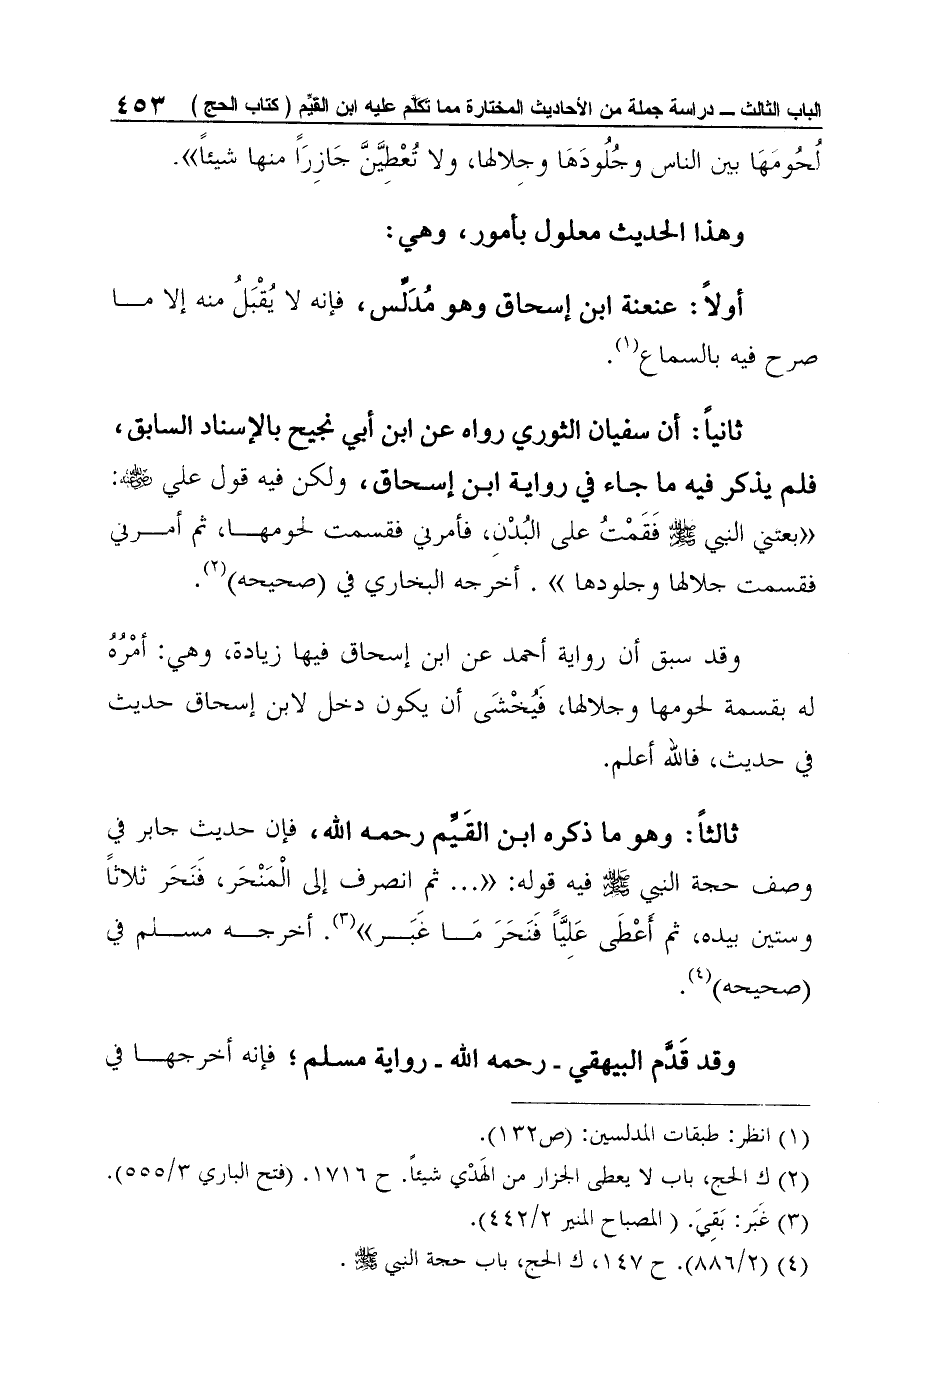 الباب الثالث ــ دراسة جملة من الأحاديث المختارة مما تكلّم عليه ابن القيّم ( كتاب الحج ) ٤٥٣
لُحُومَهَا بين الناس وجُلُودَهَا وجِلالها، ولا تُعْطِيَّنَّ جَازِرَاً منها شيئاً».
وهذا الحديث معلول بأمور، وهي:
أولاً: عنعنة ابن إسحاق وهو مُدَلِّس، فإنه لا يُقْبَلُ منه إلا مـا
صرح فيه بالسماع(١).
ثانياً: أن سفيان الثوري رواه عن ابن أبي نجيح بالإسناد السابق،
فلم يذكر فيه ما جاء في رواية ابن إسحاق، ولكن فيه قول علي ﵁:
«بعثني النبي ﷺ فَقَمْتُ على البُدْنِ، فأمرني فقسمت لحومهـا، ثم أمـرني
فقسمت جلالها وجلودها » . أخرجه البخاري في (صحيحه)(٢).
وقد سبق أن رواية أحمد عن ابن إسحاق فيها زيادة، وهي: أَمْرُهُ
له بقسمة لحومها وجلالها، فَيُخْشَى أن يكون دخل لابن إسحاق حديث
في حديث، فالله أعلم.
ثالثاً: وهو ما ذكره ابن القَيِّم رحمه الله، فإن حديث جابر في
وصف حجة النبي ﷺ فيه قوله: «... ثم انصرف إلى الْمَنْحَر، فَنَحَر ثلاثاً
وستين بيده، ثم أَعْطَى عَلِيَّاً فَنَحَرَ مَـا غَبَـر»(٣). أخرجـه مسـلم في
(صحيحه)(٤).
وقد قَدَّم البيهقي ـ رحمه الله ـ رواية مسلم؛ فإنه أخرجهـا في
(١) انظر: طبقات المدلسين: (ص١٣٢).
(٢) ك الحج، باب لا يعطى الجزار من الهَدْي شيئاً. ح ١٧١٦. (فتح الباري ٥٥٥/٣).
(٣) غَبَر: بَقِيَ. ( المصباح المنير ٤٤٢/٢).
(٤) (٨٨٦/٢). ح ١٤٧، ك الحج، باب حجة النبي ﷺ .